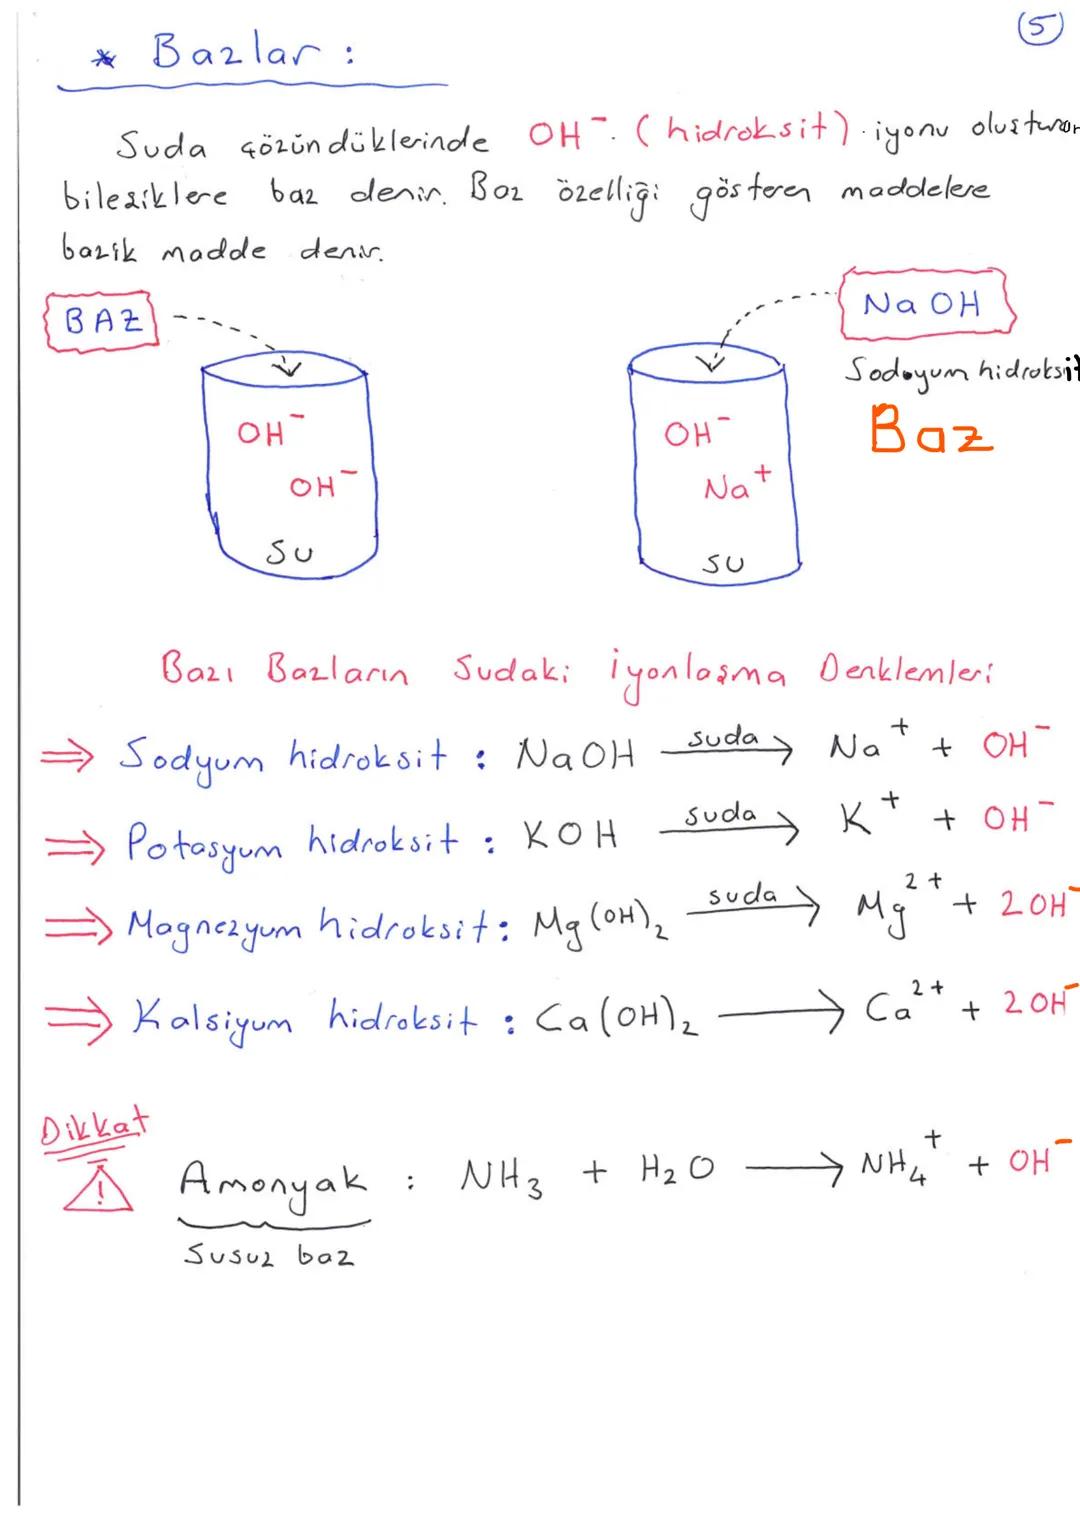 5
* Bazlar :
Suda çözündüklerinde OH⁻ (hidroksit) iyonu oluşturan
bileşiklere baz denir. Baz özelliği gösteren maddelere
bazik madde denir.
BAZ
NaOH
Sodyum hidroksit
Baz
OH⁻
OH⁻
Su
OH⁻
Na⁺
SU
Bazı Bazların Sudaki İyonlaşma Denklemleri
⇒ Sodyum hidroksit : NaOH suda → Na⁺ + OH⁻
⇒ Potasyum hidroksit : KOH suda → K⁺ + OH⁻
⇒ Magnezyum hidroksit : Mg(OH)₂ suda → Mg²⁺ + 2OH⁻
⇒ Kalsiyum hidroksit : Ca(OH)₂ → Ca²⁺ + 2OH⁻
Dikkat
!
Amonyak : NH₃ + H₂O → NH₄⁺ + OH⁻
Susuz baz